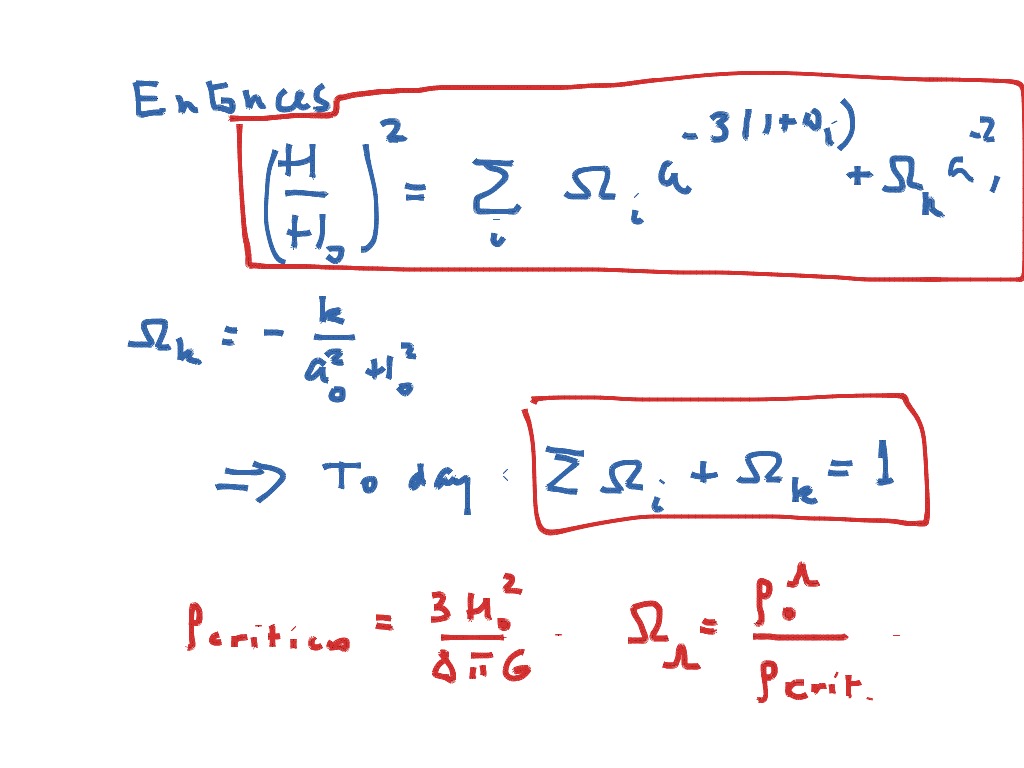 Entonces
(H/H₀)² = Σᵢ Ωᵢ a^(-3(1+ωᵢ)) + Ωₖ a⁻²,
Ωₖ = - k/(a₀² H₀²)
⟹ Today : ΣΩᵢ + Ωₖ = 1
ρcritico = 3H₀²/(8πG) - Ω_Λ = ρ₀^Λ/ρcrit. -